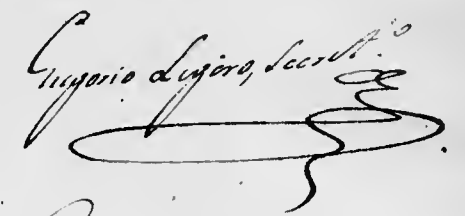 Gregorio Ligero, Secret.º